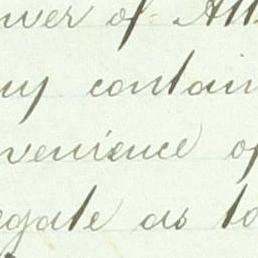 wer of Att
ny contain
venience of
egate as to